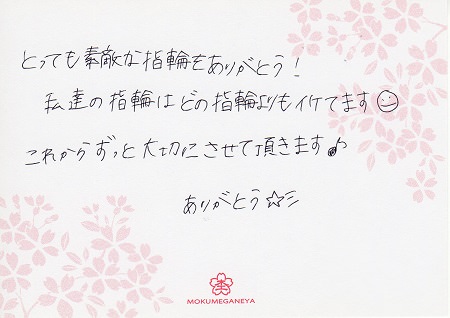 とっても素敵な指輪をありがとう!
私達の指輪はどの指輪よりもイケてます☺
これからずっと大切にさせて頂きます♪
ありがとう☆ミ
MOKUMEGANEYA